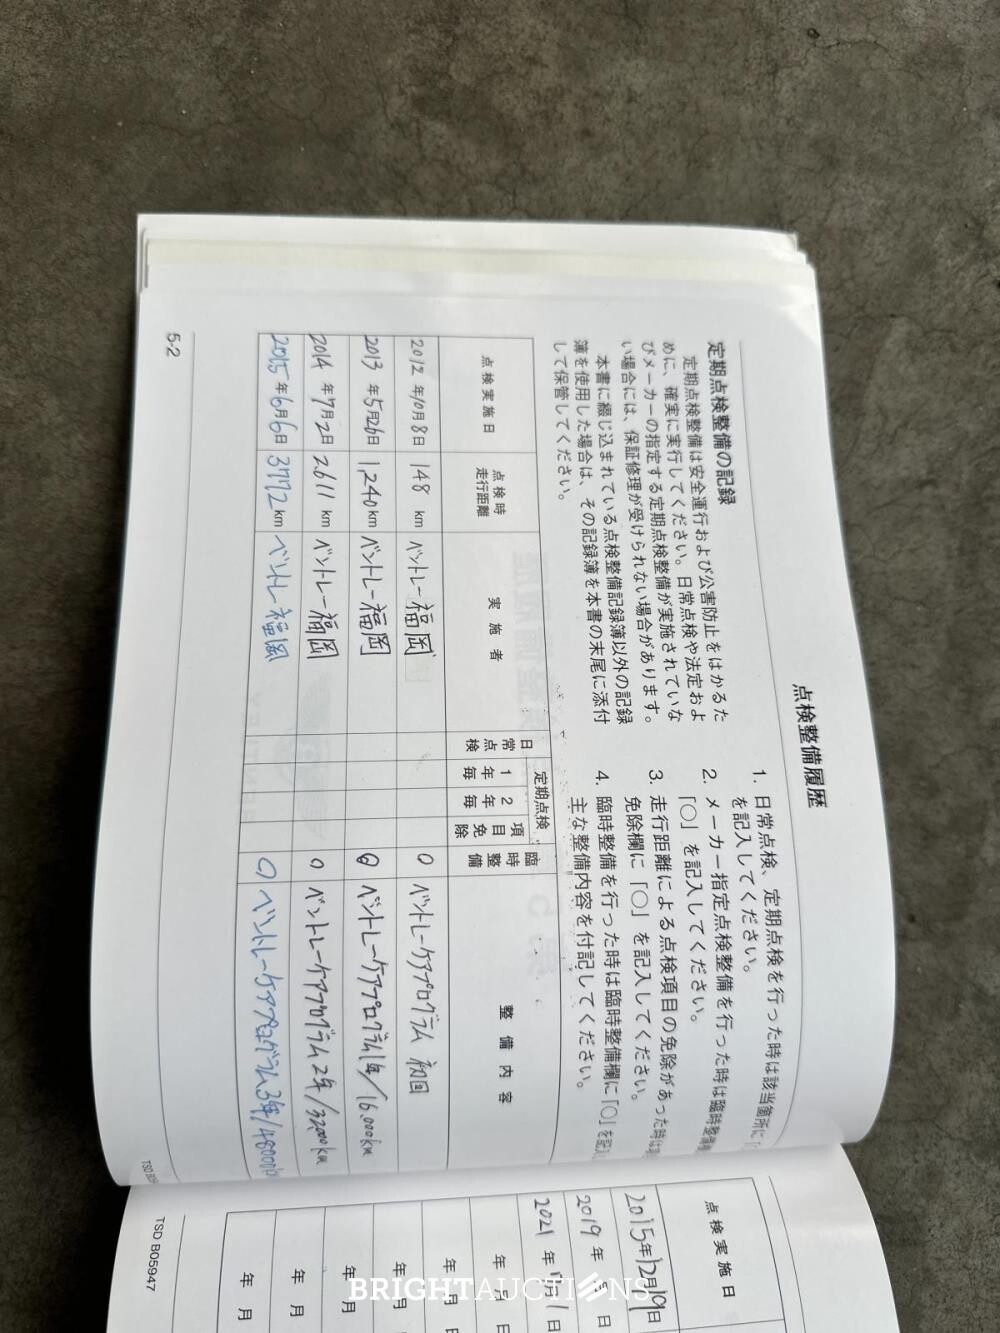 点検整備履歴
定期点検整備の記録
定期点検整備は安全運行および公害防止をはかるた
めに、確実に実行してください。日常点検や法定およ
びメーカーの指定する定期点検整備が実施されていな
い場合には、保証修理が受けられない場合があります。
本書に綴じ込まれている点検整備記録簿以外の記録
簿を使用した場合は、その記録簿を本書の末尾に添付
して保管してください。
1. 日常点検、定期点検を行った時は該当箇所に「
を記入してください。
2. メーカー指定点検整備を行った時は臨時整備
「○」を記入してください。
3. 走行距離による点検項目の免除があった時は
免除欄に「○」を記入してください。
4. 臨時整備を行った時は臨時整備欄に「○」を記入
主な整備内容を付記してください。
点検実施日 点検時走行距離 実施者 日常点検 定期点検 1年毎 2年毎 項目免除 臨時整備 整備内容
2012年10月8日 148 km ベントレー福岡 ○ ベントレーケアプログラム 初回
2013年5月26日 1,240 km ベントレー福岡 ○ ベントレーケアプログラム1年/16,000km
2014年7月2日 2,611 km ベントレー福岡 ○ ベントレーケアプログラム2年/32,000km
2015年6月6日 3772 km ベントレー福岡 ○ ベントレーケアプログラム3年/48000k
5-2
点検実施日
2015年12月19日
2019年 日
2021年 月1日
年 月 日
年 月 日
年 月
年 月
年 月
TSD B05947
BRIGHTAUCTIONS